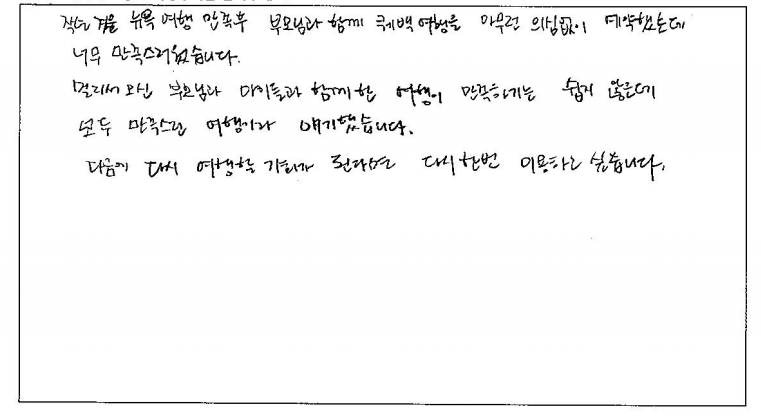 작년 겨울 뉴욕 여행 만족후 부모님과 함께 퀘백 여행을 아무런 의심없이 예약했는데
너무 만족스러웠습니다.
멀리서 오신 부모님과 아이들과 함께한 여행이 만족하기는 쉽지 않은데
모두 만족스런 여행이라 얘기했습니다.
다음에 다시 여행할 기회가 된다면 다시한번 이용하고 싶습니다.